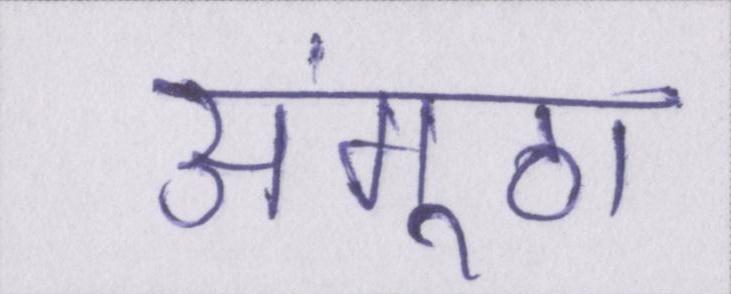 अंगूठा